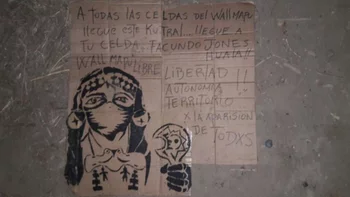 A TODAS LAS CELDAS DEL WALLMAPU
LLEGUE ESTE KUTRAL. LLEGUE A
TU CELDA, FACUNDO JONES
HUALA!!
WALLMAPU LIBRE
LIBERTAD!!
AUTONOMÍA
TERRITORIO
X LA
DE TODXS